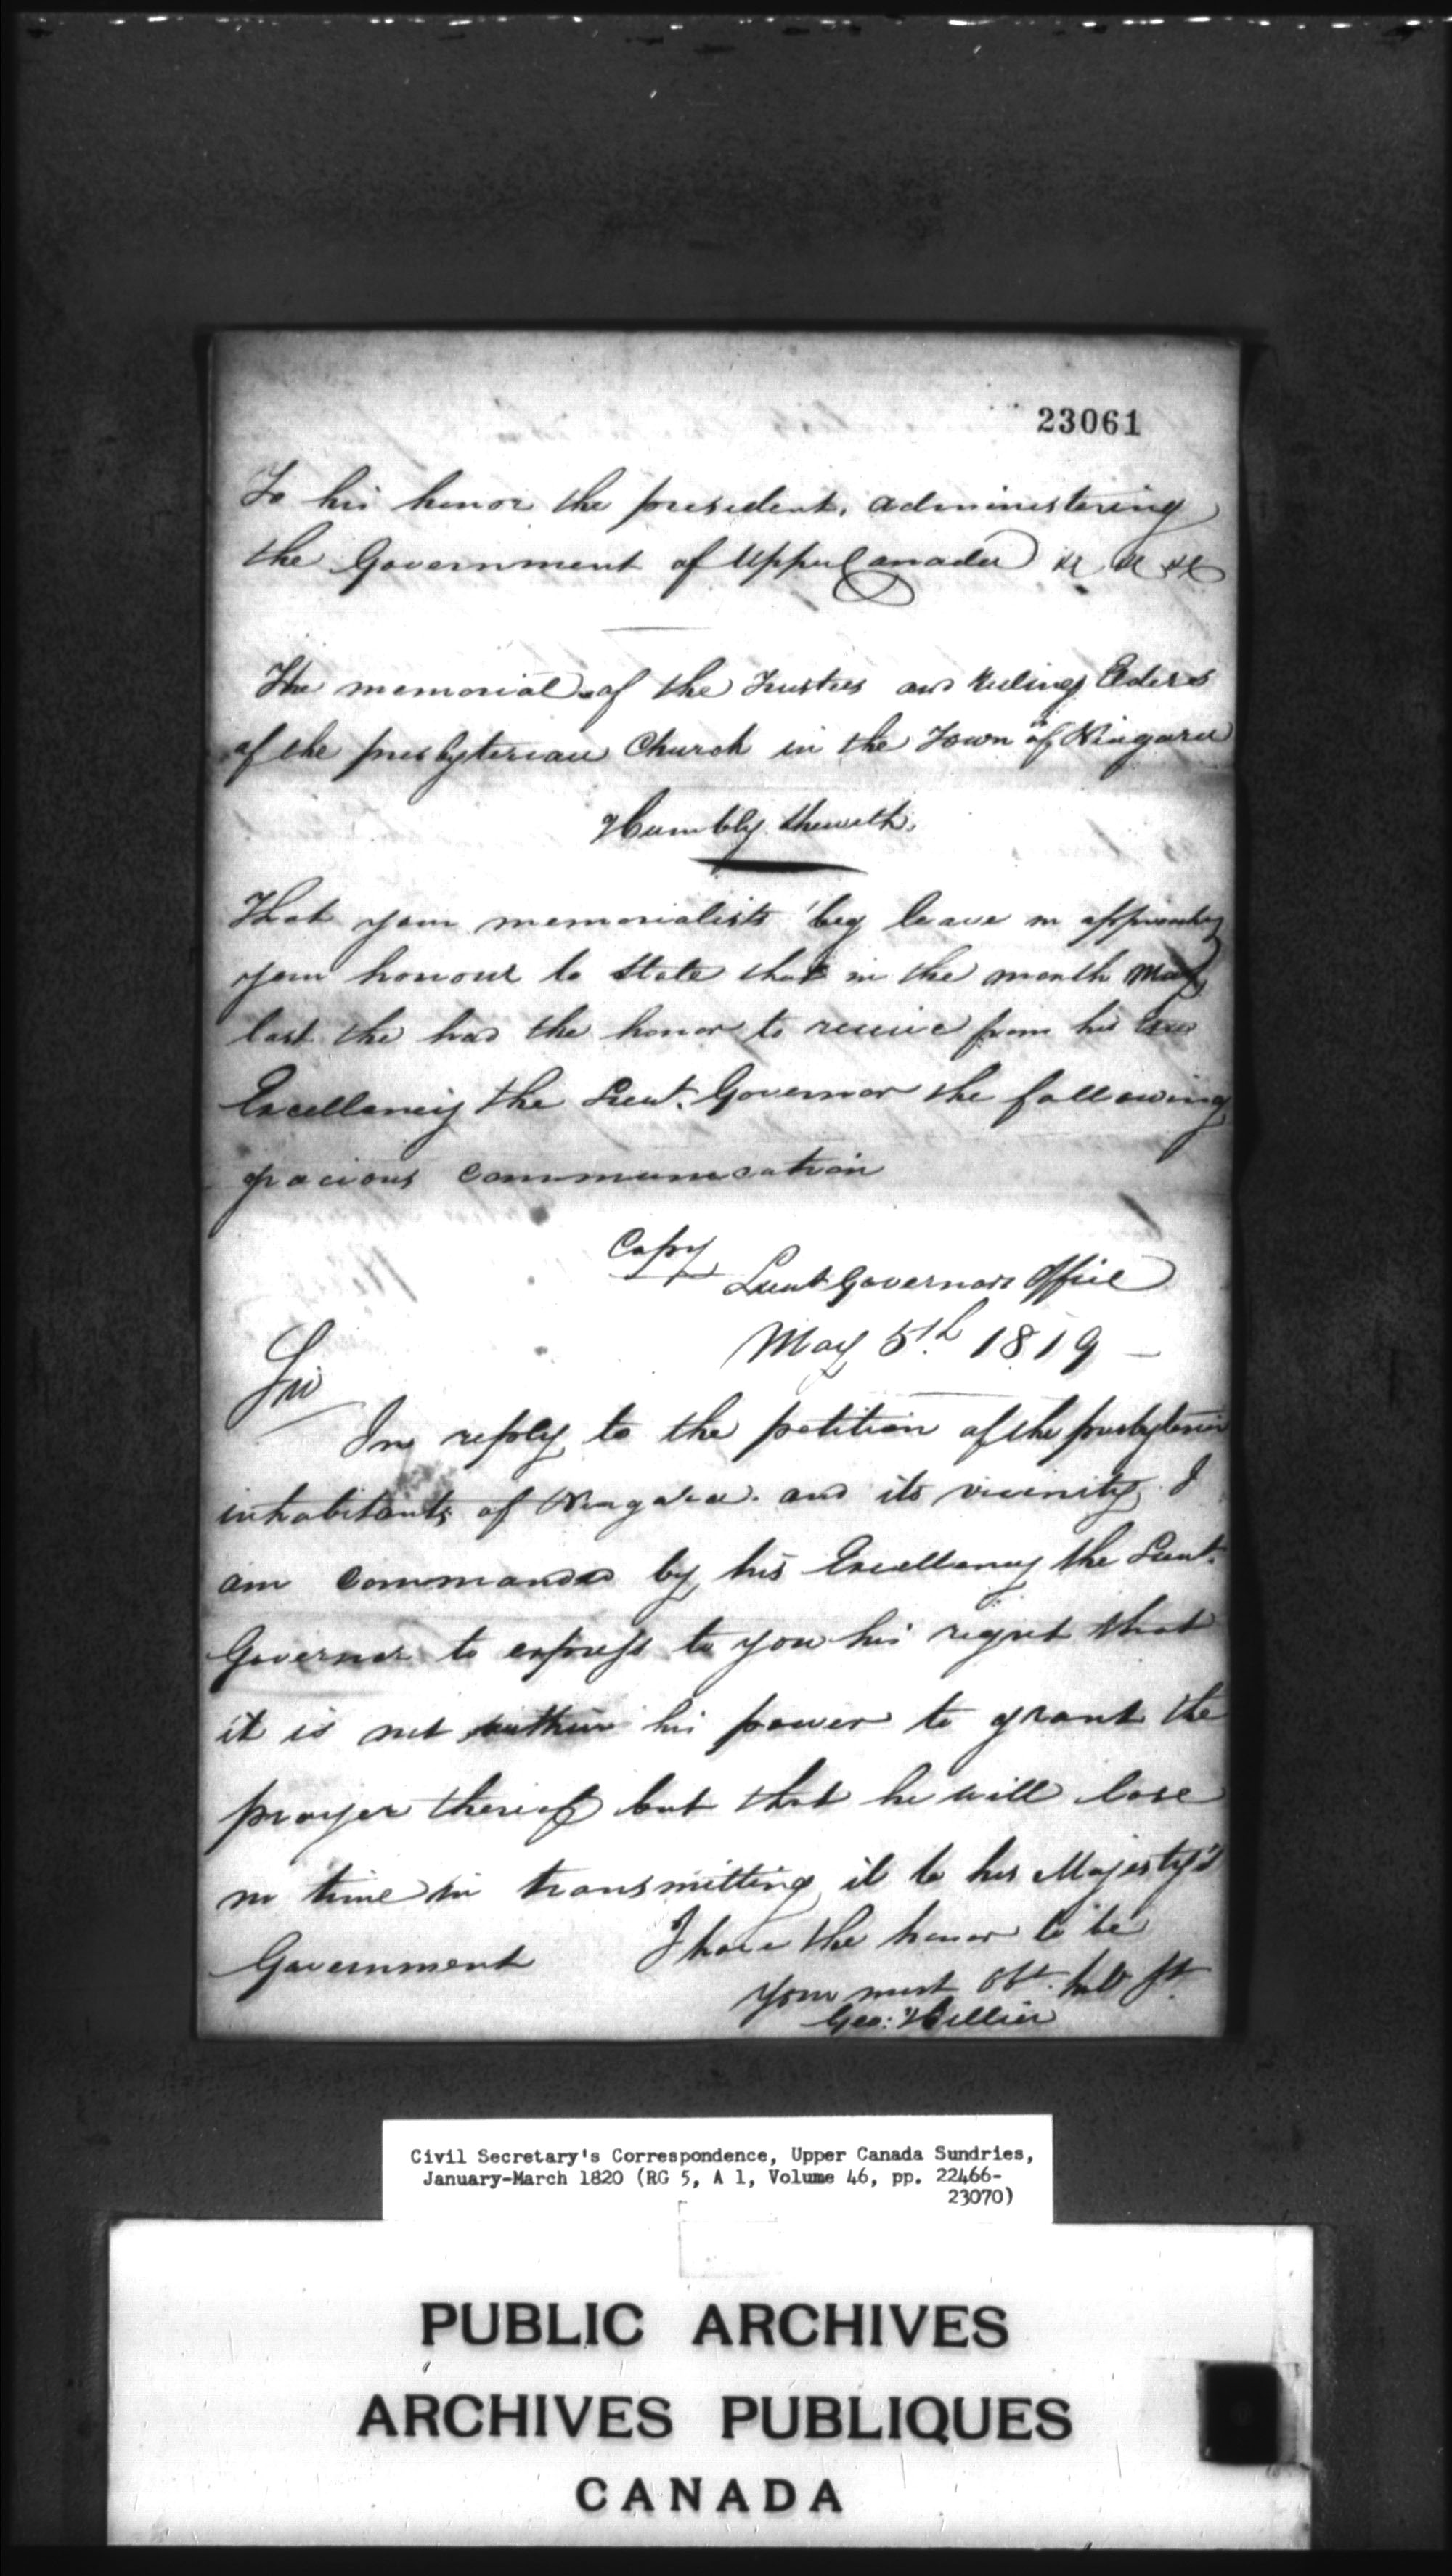 23061
To his honor the president, administering
the Government of Upper Canada &c &c &c
The memorial of the Trustees and Ruling Elders
of the presbyterian Church in the Town of Niagara
Humbly sheweth,
That your memorialists beg leave in approaching
your honour to state that in the month May
last the had the honor to receive from his
Excellency the Lieut. Governor the following
gracious communication
Copy
Lieut Governors Office
May 5th 1819 —
Sir
In reply to the petition of the presbyterian
inhabitants of Niagara and its vicinity I
am commanded by his Excellency the Lieut.
Governor to express to you his regret that
it is not within his power to grant the
prayer thereof but that he will lose
no time in transmitting it to his Majesty's
Government I have the honor to be
your most obt. hble St
Geo: Hillier
Civil Secretary's Correspondence, Upper Canada Sundries,
January-March 1820 (RG 5, A 1, Volume 46, pp. 22466-
23070)
PUBLIC ARCHIVES
ARCHIVES PUBLIQUES
CANADA